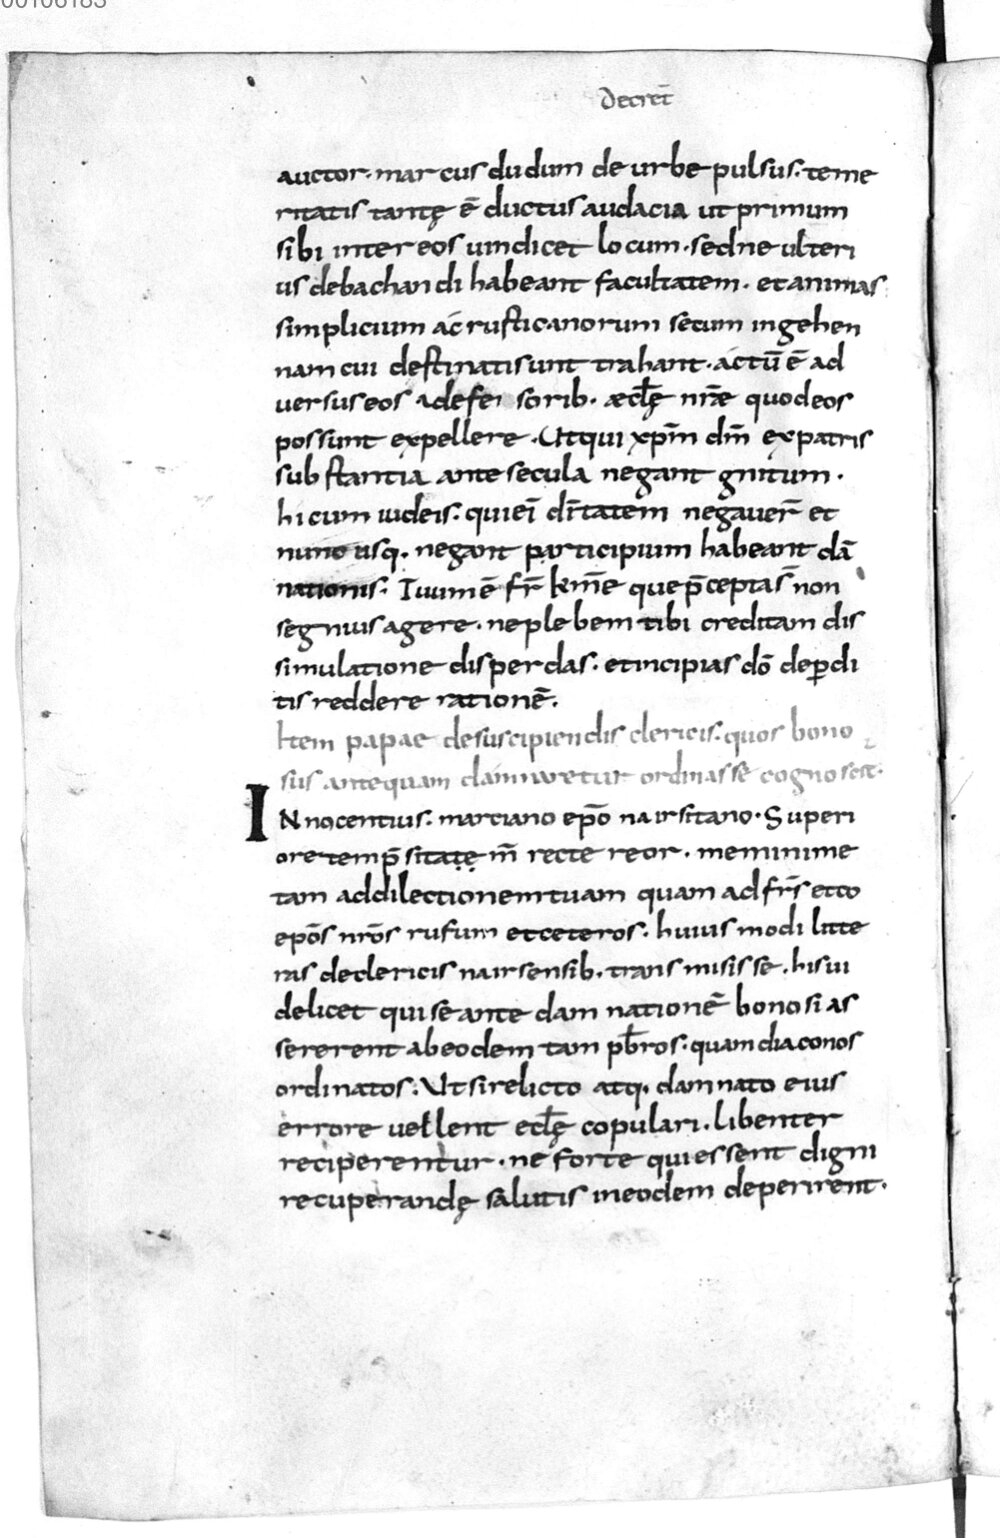 00106183
Decret̄
auctor· marcus dudum de urbe pulsus· teme
ritatis tantę ē ductus audacia ut primum
sibi inter eos uindicet locum· sed ne ulteri
us debachandi habeant facultatem· et animas
simplicium ac rusticanorum secum in gehen
nam cui destinati sunt trahant· actū ē ad
uersus eos a defen sorib· æcłę nr̄æ quod eos
possunt expellere· Atqui xp̄m dn̄m ex patris
substantia ante secula negant gnitum·
hi cum iudeis· qui eī di̅tatem negauer̄ et
nunc usq· negant participium habeant dā
nationis· Tuum ē fr̄ km̄e que p̄cepta s̄ non
segnius agere· ne plebem tibi creditam dis
simulatione disperdas· et incipias dō de ꝑdi
tis reddere rationē·
Item papae de suscipiendis clericis· quos bono
sus antequam damnaretur ordinasse cognoscit·
INnocentius· marciano ep̄o naisitano· Superi
ore temp̄sitatę m̄ recte reor· memini me
tam ad dilectionem tuam quam ad fr̄s et co
ep̄os nr̄os rufum et ceteros· huius modi litte
ras de clericis naisensib· transmisisse· his ui
delicet qui se ante damnationē bonosi as
sererent ab eodem tam pb̄ros· quam diaconos
ordinatos· Ut si relicto atq· damnato eius
errore uellent ecłę copulari· libenter
reciperentur· ne forte qui essent digni
recuperandę salutis in eodem deperirent·